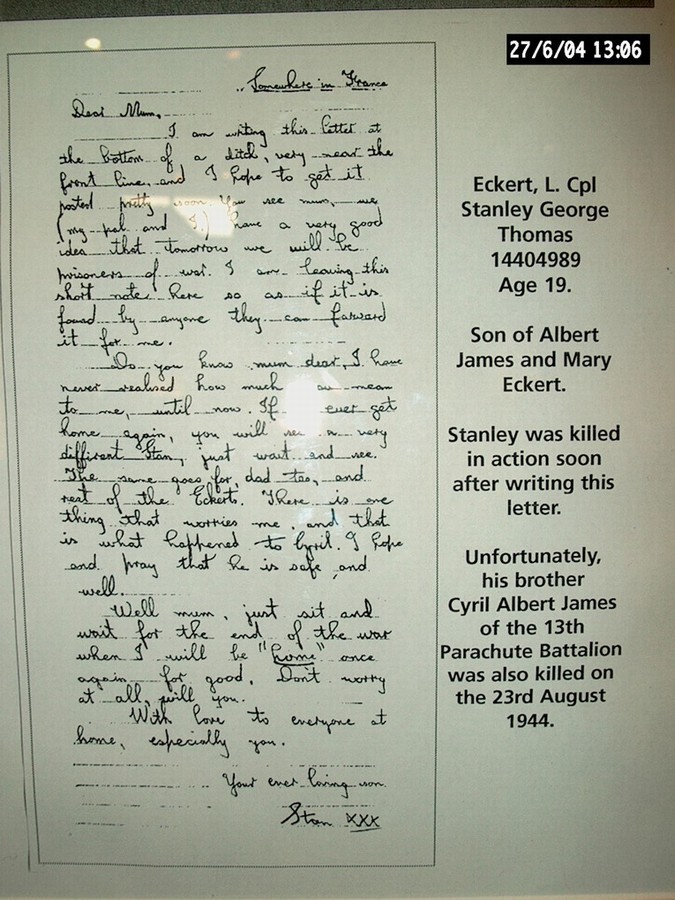 27/6/04 13:06
Somewhere in France
Dear Mum,
I am writing this letter at
the bottom of a ditch, very near the
front line, and I hope to get it
posted pretty soon. You see mum, we
(my pal and I.) have a very good
idea that tomorrow we will be
prisoners of war. I am leaving this
short note here so as if it is
found by anyone they can forward
it for me.
Do you know mum dear, I have
never realised how much mean
to me, until now. If ever get
home again, you will see a very
different Stan, just wait and see.
The same goes for, dad too, and
rest of the Eckerts. There is one
thing that worries me, and that
is what happened to Cyril. I hope
and pray that he is safe and
well.
Well mum, just sit and
wait for the end of the war
when I will be "home" once
again for good. Don't worry
at all, will you.
With love to everyone at
home, especially you.
Your ever loving son
Stan XXX
Eckert, L. Cpl
Stanley George
Thomas
14404989
Age 19.
Son of Albert
James and Mary
Eckert.
Stanley was killed
in action soon
after writing this
letter.
Unfortunately,
his brother
Cyril Albert James
of the 13th
Parachute Battalion
was also killed on
the 23rd August
1944.